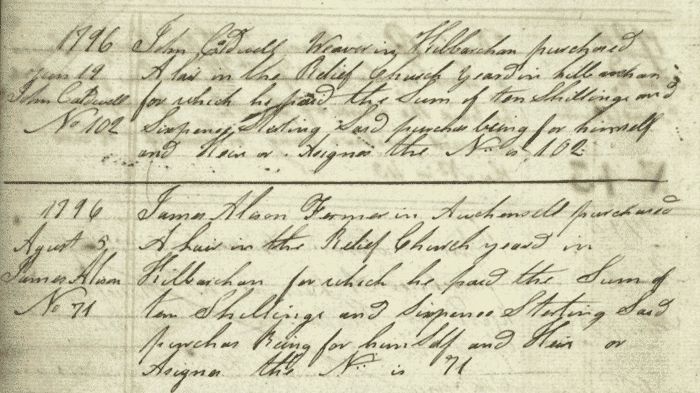 1796 John Caldwell Weaver in Kilbarchan purchased
Jun 19 A lair in the Relief Church Yeard in killbarchan
John Caldwell for which he paid the Sum of ten Shillings and
No 102 Sixpense Sterling Said purchas being for himself
and Heir or Asignes the No is 102
1796 James Alason Fermer in purchased
Agust 5 A lair in the Relief Church yeard in
James Alason Kilbarchan for which he paid the Sum of
No 71 ten Shillings and Sixpense Sterling Said
purchas Being for himself and Heir or
Asignes the No is 71